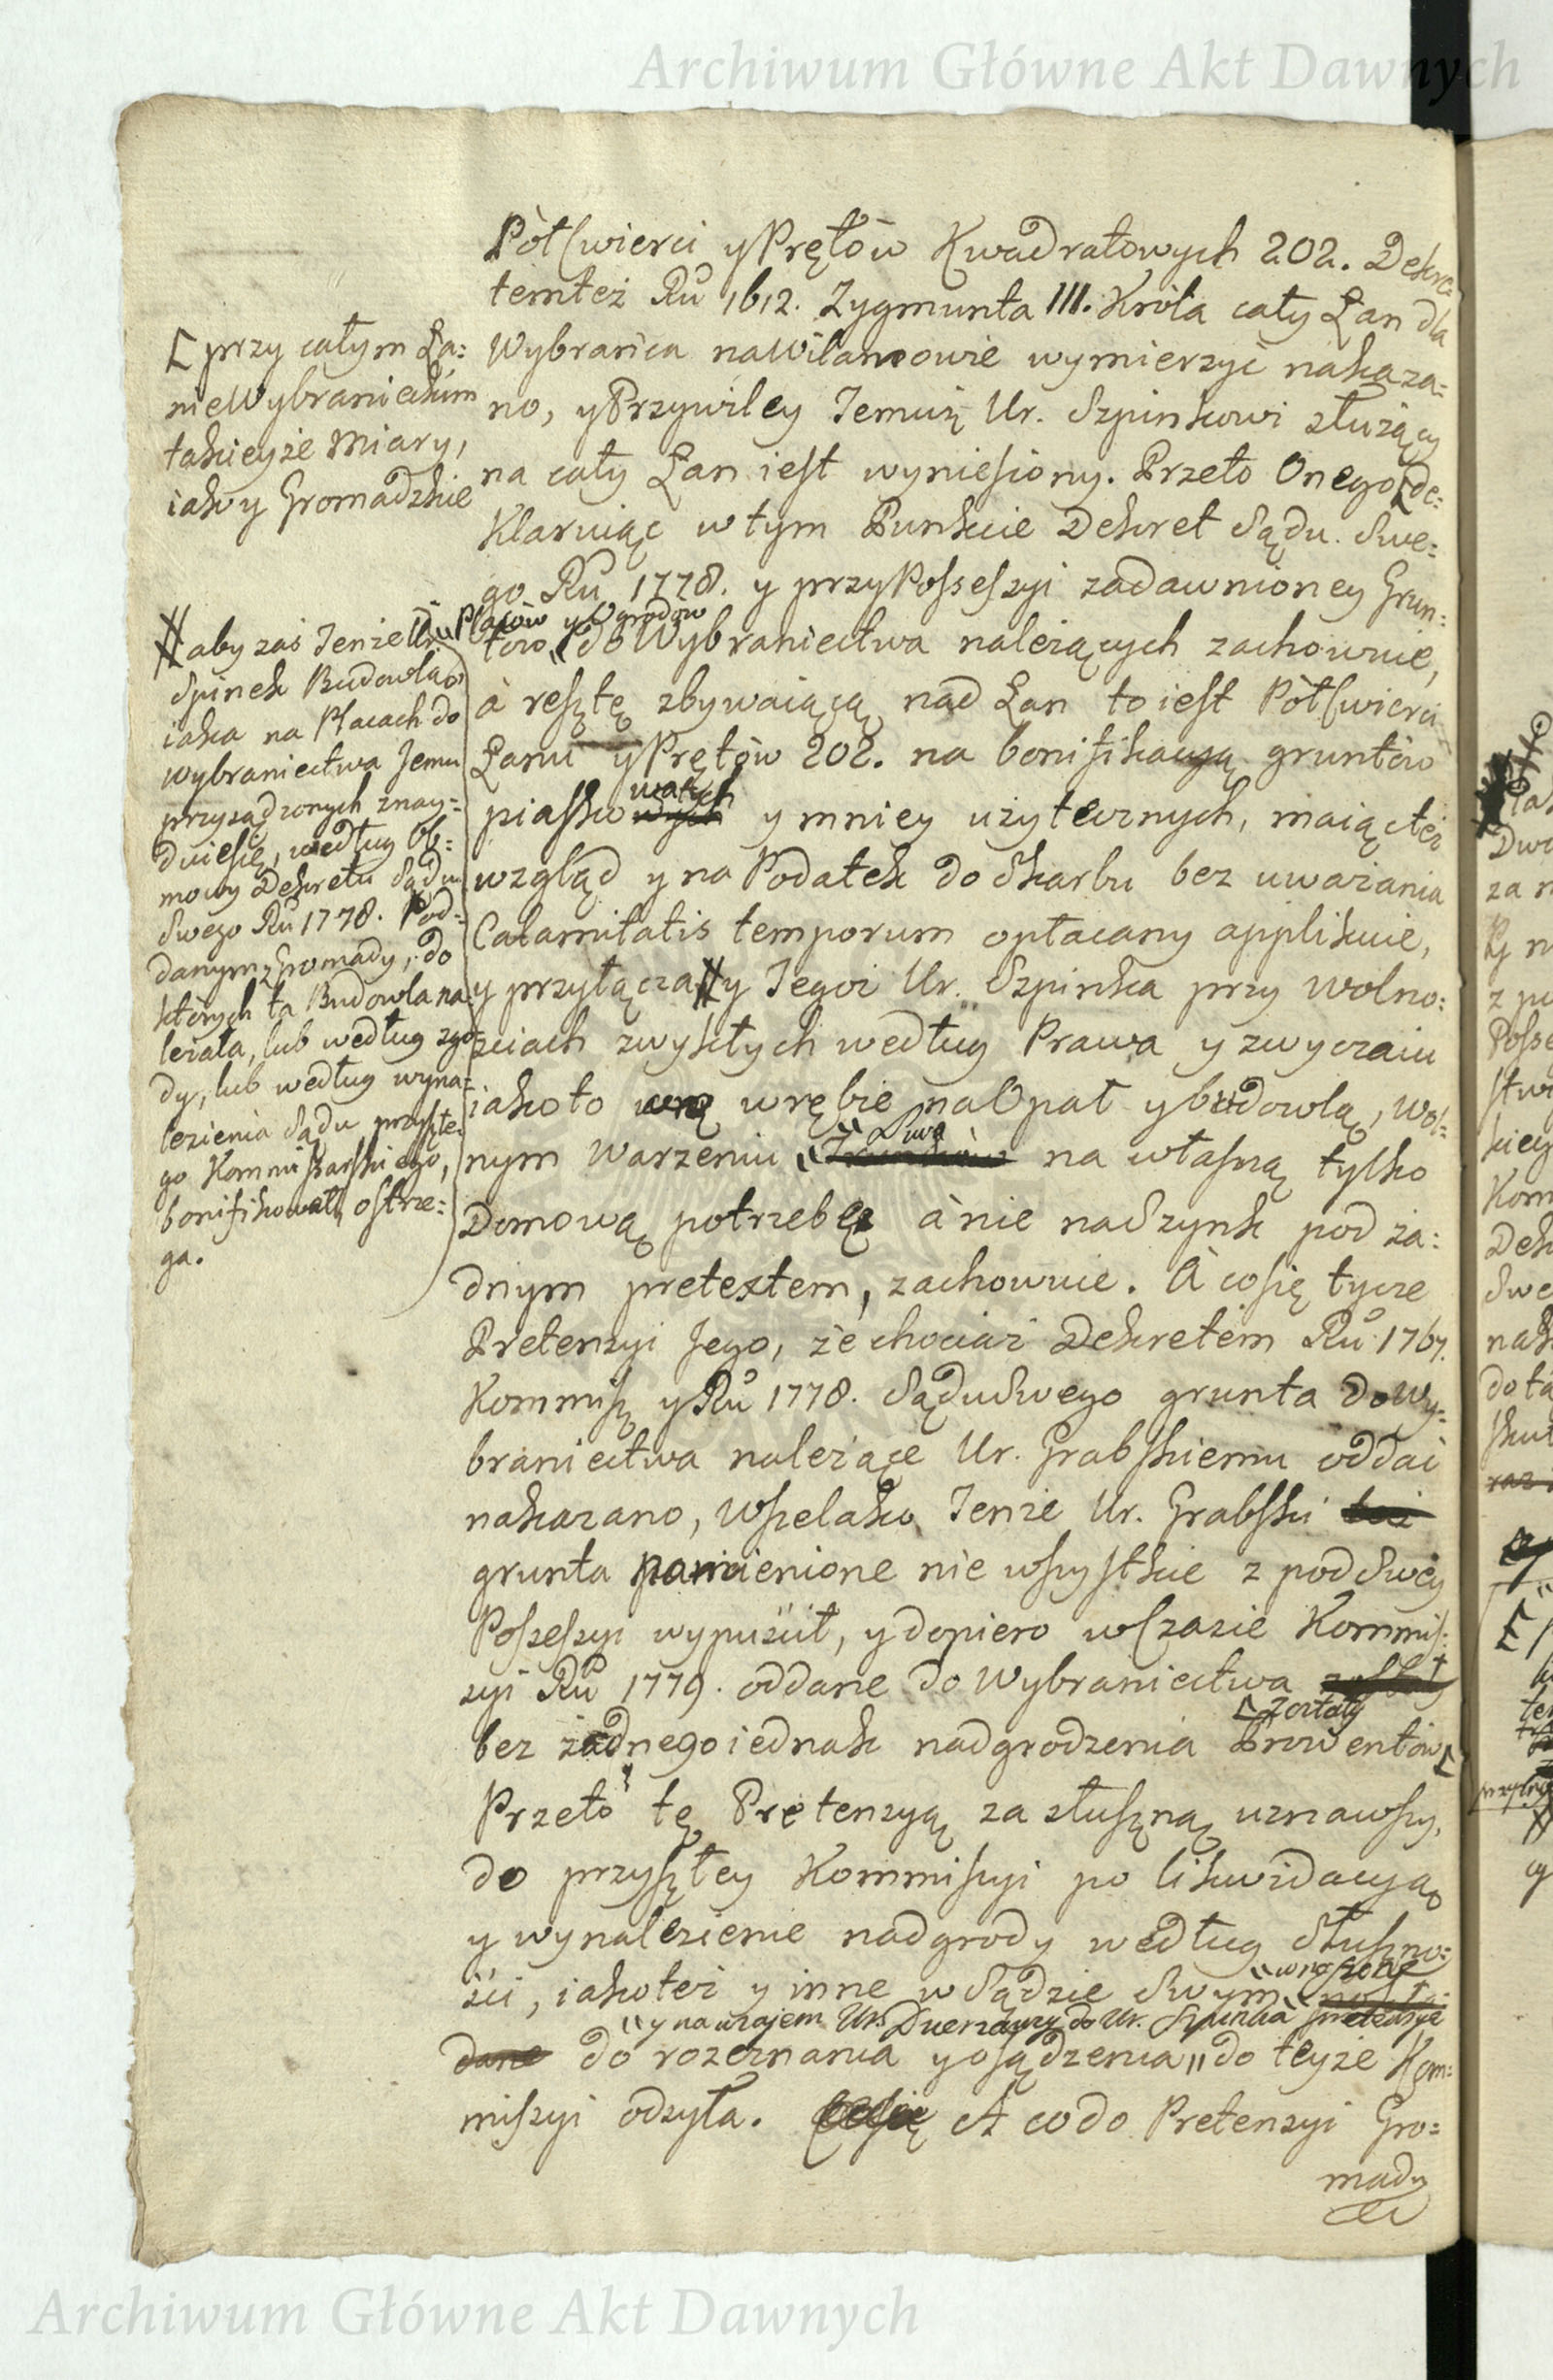 Archiwum Główne Akt Dawnych
Pòłćwierci y Prętòw Kwadratowych 202. Dekre-
temteż Rũ 1612. Zygmunta III. Kròla cały Łan dla
Wybrańca na Wilamowie wymierzyć nakaza=
no, y Przywiley Jemuż Ur. Szpinkowi służący
na cały Łan iest wyniesiony. Przeto Onego [de=
klaruiąc w tym Punkcie Dekret Sądu Swe=
go Rũ 1778. y przy Possessyi zadawnioney Grun=
" Placòw y Ogrodòw
tòw " do Wybraniectwa należących zachowuie,
à resztę zbywaiącą nad Łan to iest Pòłćwierci
Łanu y Prętòw 202. na bonifikacyą gruntòw
watych
piasko y mniey użytecznych, maiąc też
wzgląd y na Podatek do Skarbu bez uważania
Calamitatis temporum opłacany applikuie,
y przyłącza # y Tegoż Ur. Szpinka przy wolno:
ściach zwykłych według Prawa y zwyczaiu
iakoto wrębie na Opał y budowlą, wol=
Piwa
nym Warzeniu " na własną tylko
Domową potrzebę à nie na Szynk pod ża:
dnym pretextem, zachowuie. À co się tycze
Pretensyi Jego, że chociaż Dekretem Rũ 1767.
Kommisy: y Rũ 1778. Sądu Swego grunta do Wy=
braniectwa należące Ur. Grabskiemu oddać
nakazano, wszelako Tenże Ur. Grabski
grunta pomienione nie wszystkie z pod Swey
Possessyi wypuścił, y dopiero w czasie Kommis:
syi Rũ 1779. oddane do Wybraniectwa
[zostały
bez żadnego iednak nadgrodzenia Prowentòw [
Przeto tę Pretensyą za słuszną uznawszy,
do przyszłey Kommissyi po likwidacyą
y wynalezienie nadgrody według Słuszno=
" wnoszone
ści, iakoteż y inne w Sądzie Swym "
" y nawzajem Ur. Duerzawcy do Ur. Szpinka pretensye
do rozeznania y osądzenia " do teyże Kom=
missyi odsyła. A co do Pretensyi Gro=
mady
[ przy całym Ła:
nie Wybranieckim
takieyże Miary,
iak y Gromadzkie
# aby zaś Tenże Ur.
Spinek Budowlą
iaka na Placach do
wybraniectwa Jemu
przysądzonych znay=
dzie się, według Ob=
mowy Dekretu Sądu
Swego Rũ 1778. Pod=
danym z Gromady, do
ktòrych ta Budowla na
leżała, lub według zgo
dy, lub według wyna=
lezienia Sądu przyszłe
go Kommissarskiego,
bonifikował, ostrze=
ga.
Archiwum Główne Akt Dawnych